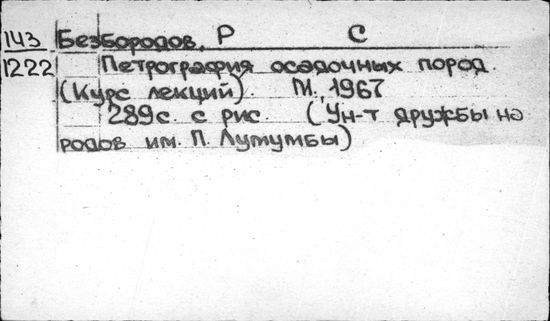 143 Безбородов, Р С
1222 Петрография осадочных пород.
(Курс лекций). М. 1967
289с. с рис. (Ун-т дружбы на
родов им. П. Лумумбы)